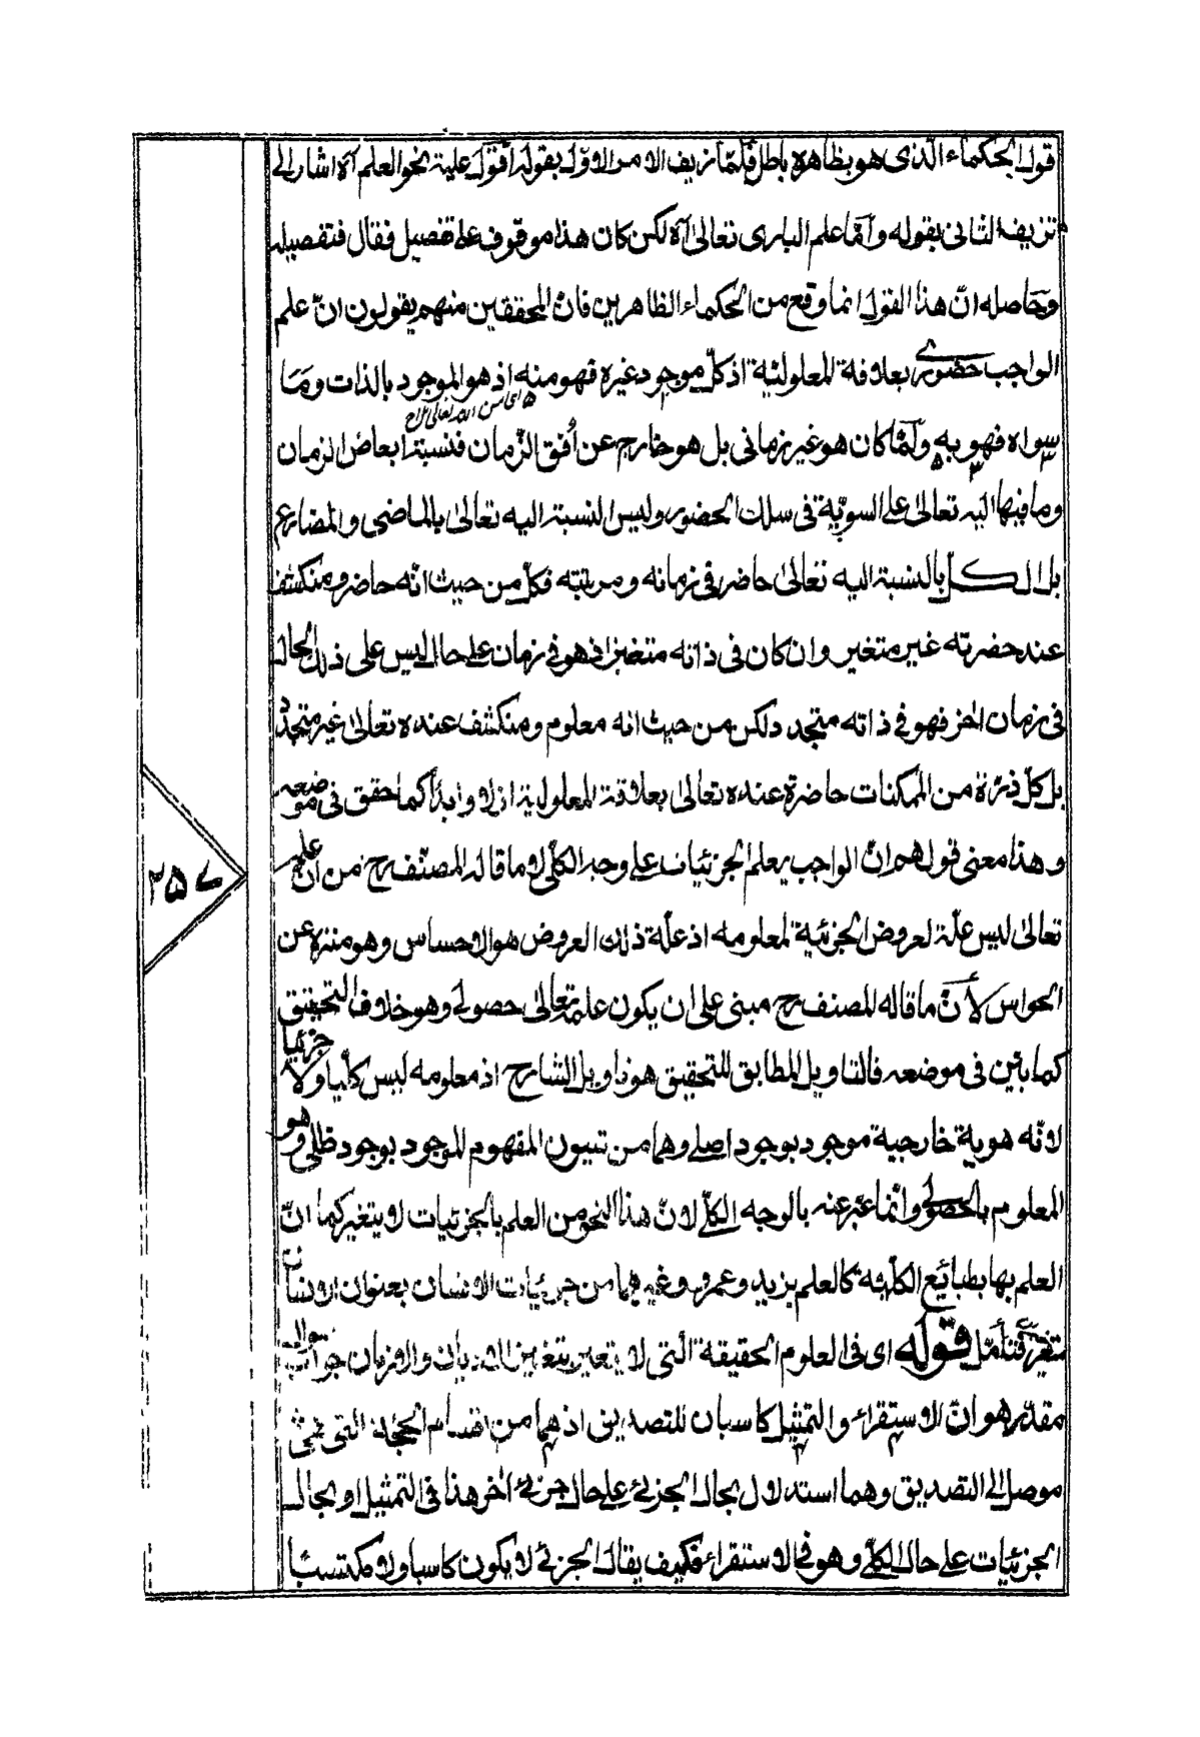 قول الحكماء الذى هو بظاهره باطل فلما زيف الامر الاول بقوله اقول علية نحو العلم آه اشار الى
تزييف الثانى بقوله وامّا علم البارى تعالىٰ آه لكن كان هذا موقوف على تفصيل فقال فتفصيله
وحاصله انّ هذا القول انما وقع من الحكماء الظاهرين فان المحققين منهم يقولون انّ علم
الواجب حضورى بعلاقة المعلولية اذ كلّ موجود غيره فهو منه اذ هو الموجود بالذات وما
ه اى من الله تعالى ١٢ح
سواه فهو به ولمّا كان هو غير زمانى بل هو خارج عن اُفق الزّمان فنسبة ابعاض الزمان
وما فيها اليه تعالىٰ على السويّة فى سلك الحضور وليس النسبة اليه تعالىٰ بالماضى والمضارع
بل الكل بالنسبة اليه تعالىٰ حاضر فى زمانه ومرتبته فكلّ من حيث انّه حاضر ومنكشف
عند حضرته غير متغير وان كان فى ذاته متغيرا فهو فى زمان على حال ليس على ذلك الحال
فى زمان اٰخر فهو فى ذاته متجدد لكن من حيث انه معلوم ومنكشف عنده تعالىٰ غير متجدّد
بل كلّ ذرّة من الممكنات حاضرة عنده تعالىٰ بعلاقة المعلولية ازلا وابدًا كما حقق فى موضعه
وهذا معنى قولهم انّ الواجب يعلم الجزئيات على وجه الكلّى لا ما قاله المصنّف رح من انّ علمه
تعالىٰ ليس علّة لعروض الجزئية لمعلومه اذ علّة ذلك العروض هو الاحساس وهو منزه عن
الحواس لأنّ ما قاله المصنف رح مبنى على ان يكون علمه تعالىٰ حصولى وهو خلاف التحقيق
كما بيّن فى موضعه فالتاويل المطابق للتحقيق هو تاويل الشارح اذ معلومه ليس كليا ولا جزئيا
لانّه هوية خارجية موجود بوجود اصلى وهما من شيون المفهوم الموجود بوجود ظلى وهو
المعلوم بالحصولى وانّما عبّر عنه بالوجه الكلّى لانّ هذا النحو من العلم بالجزئيات لا يتغير كما انّ
العلم بها بطبائع الكلّية كالعلم بزيد وعمرو وغيرهما من جزئيات الانسان بعنوان الانسان
متغير فتأمّل قوله اى فى العلوم الحقيقة التى لا يتغير بتغير الاديان والازمان جواب سوال
مقدّر هو انّ الاستقراء والتمثيل كاسبان للتصديق اذ هما من اقسام الحجّة التى هى
موصل الى التصديق وهما استدلال بحال الجزئى على حال جزئى اٰخر هذا فى التمثيل او بحال
الجزئيات على حال الكلّى وهو فى الاستقراء فكيف يقال الجزئى لا يكون كاسبا ولا مكتسبًا
٢٥٧